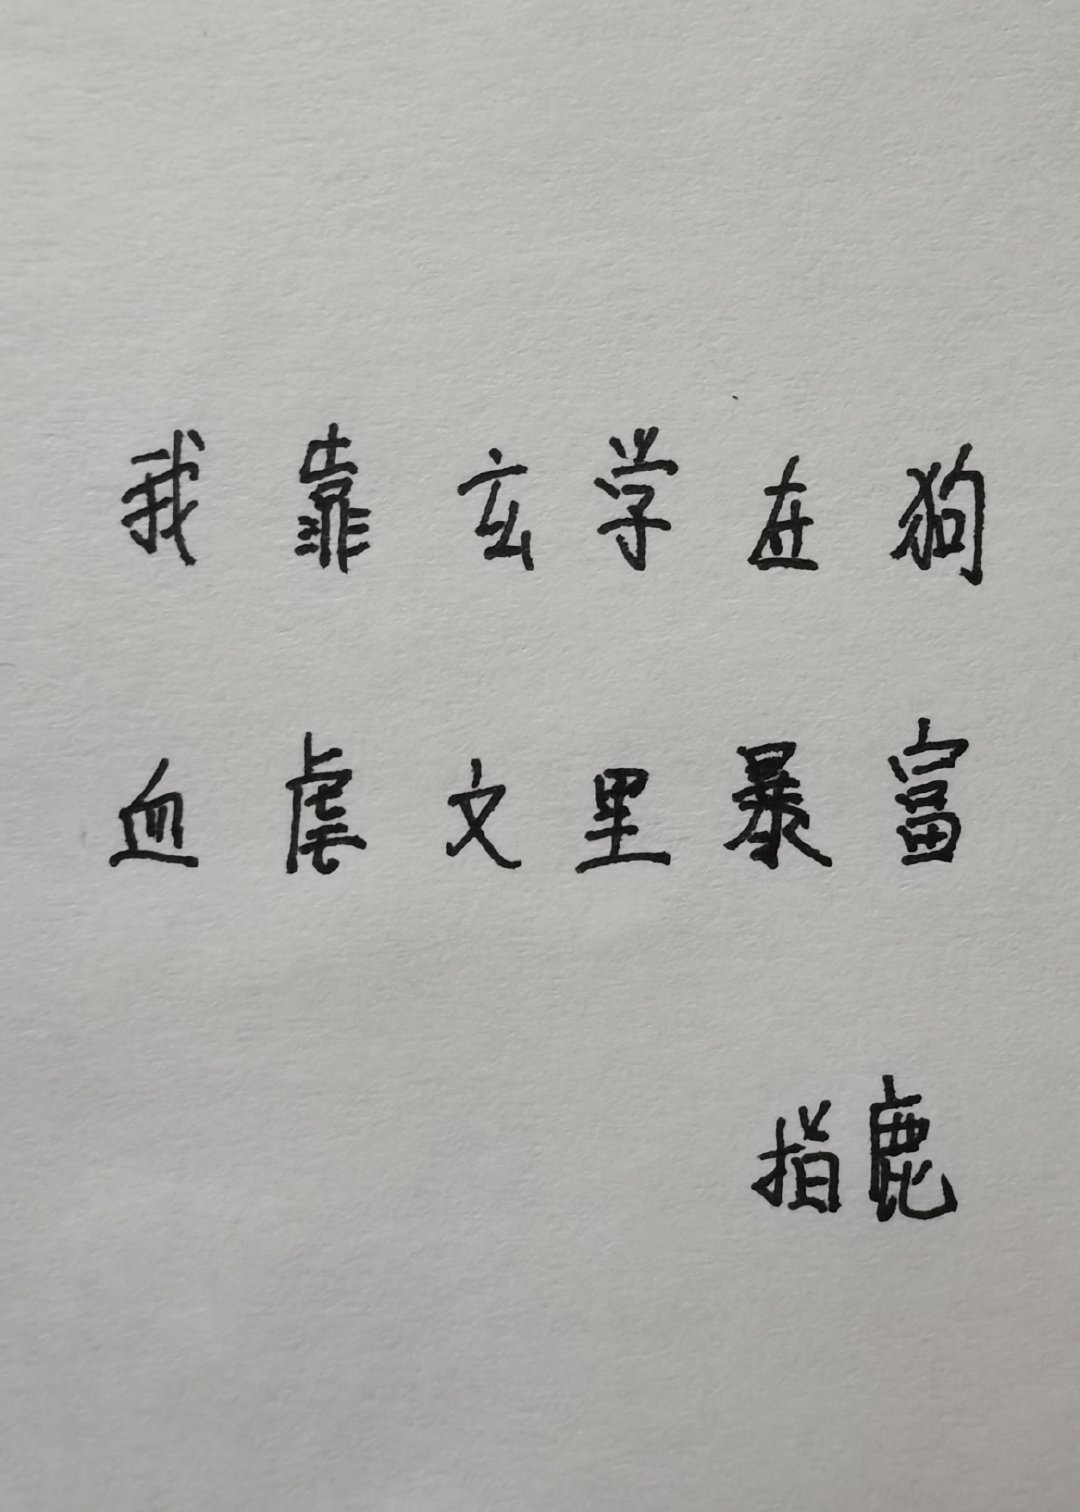 我靠玄学在狗
血虐文里暴富
指鹿